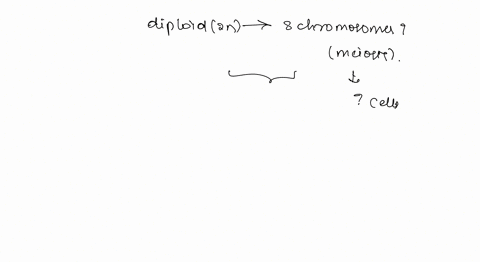 diploid (2n) → 8 chromosomes ?
(meiosis).
↓
? cells